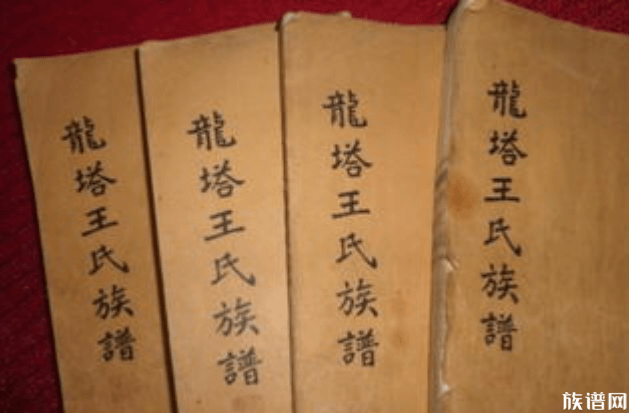 龍塔王氏族譜
龍塔王氏族譜
龍塔王氏族譜
龍塔王氏族譜
族谱网